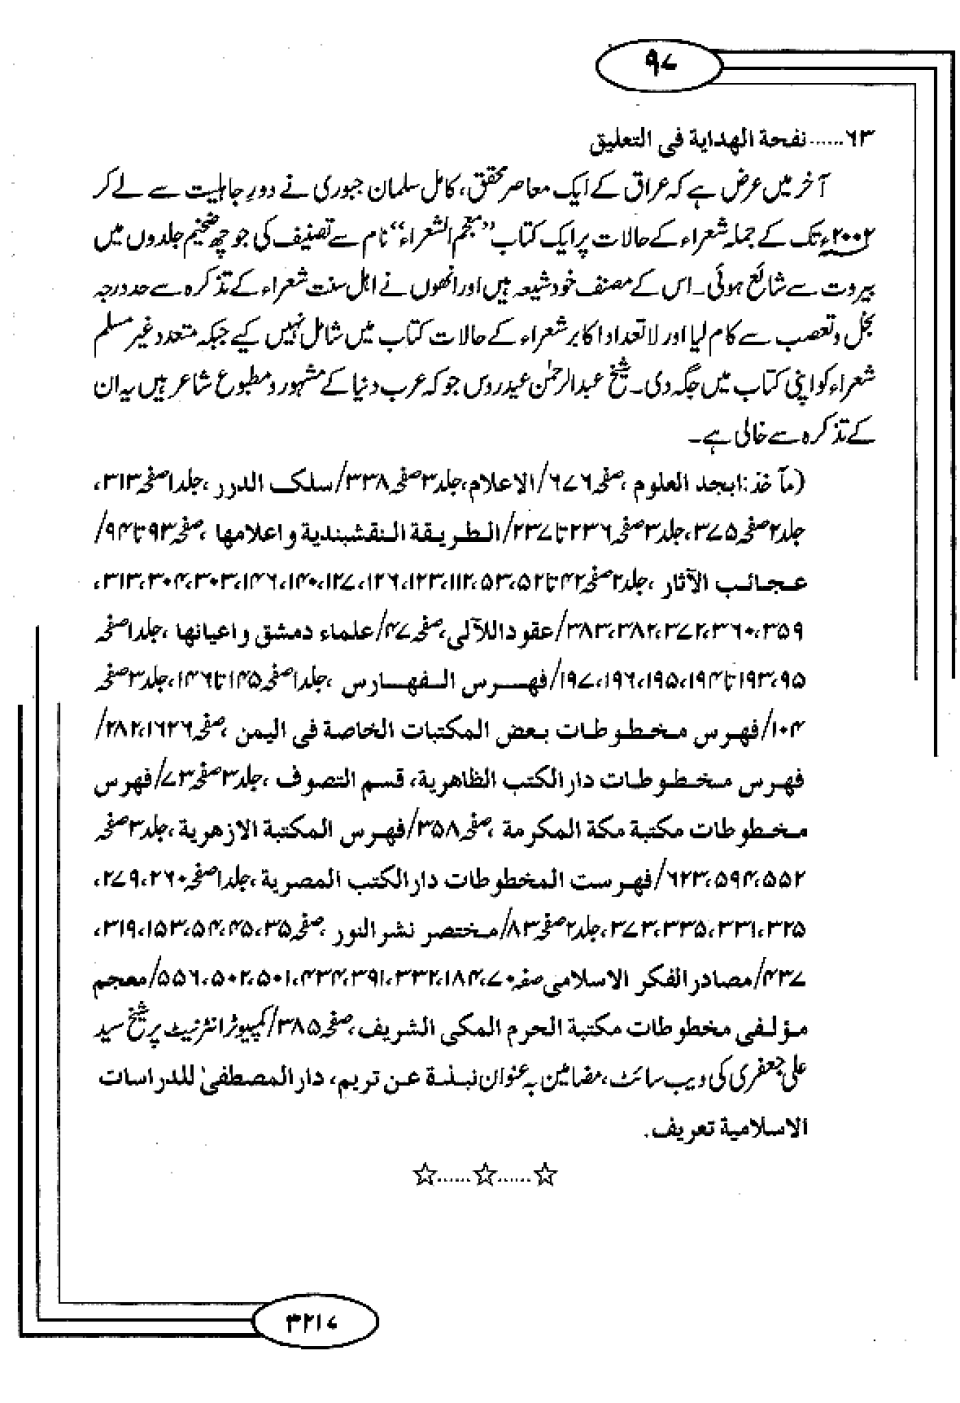 ۹۷
۶۳......نفحة الهداية فی التعليق
آخر میں عرض ہے کہ عراق کے ایک معاصر محقق، کامل سلمان جبوری نے دورِ جاہلیت سے لے کر
۲۰۰۲ء تک کے جملہ شعراء کے حالات پر ایک کتاب ”معجم الشعراء“ نام سے تصنیف کی جو چھ ضخیم جلدوں میں
بیروت سے شائع ہوئی۔ اس کے مصنف خود شیعہ ہیں اور انھوں نے اہل سنت شعراء کے تذکرہ سے حد درجہ
بخل و تعصب سے کام لیا اور لاتعداد اکابر شعراء کے حالات کتاب میں شامل نہیں کیے جبکہ متعدد غیر مسلم
شعراء کو اپنی کتاب میں جگہ دی۔ شیخ عبدالرحمٰن عیدروس جو کہ عرب دنیا کے مشہور و مطبوع شاعر ہیں یہ ان
کے تذکرہ سے خالی ہے۔
(مآخذ: ابجد العلوم، صفحہ ۶۷۶/الاعلام، جلد ۳ صفحہ ۳۳۸/سلک الدرر، جلد ا صفحہ ۳۱۳،
جلد ۲ صفحہ ۳۷۵، جلد ۳ صفحہ ۲۳۶ تا ۲۳۷/الطريقة النقشبندية و اعلامها، صفحہ ۹۳ تا ۹۴/
عجائب الآثار، جلد ۲ صفحہ ۴۲ تا ۵۲، ۵۳، ۱۱۲، ۱۲۳، ۱۲۶، ۱۲۷، ۱۴۰، ۱۴۶، ۳۰۳، ۳۰۴، ۳۱۳،
۳۵۹، ۳۶۰، ۳۷۲، ۳۸۲، ۳۸۳/عقود اللآلی، صفحہ ۴۷/علماء دمشق و اعیانها، جلد ا صفحہ
۹۵، ۱۹۳ تا ۱۹۴، ۱۹۵، ۱۹۶، ۱۹۷/فهرس الفهارس، جلد ا صفحہ ۱۴۵ تا ۱۴۶، جلد ۳ صفحہ
۱۰۴/فهرس مخطوطات بعض المکتبات الخاصة فی اليمن، صفحہ ۱۶۲۶، ۲۸۲/
فهرس مخطوطات دار الکتب الظاهرية، قسم التصوف، جلد ۳ صفحہ ۷۳/فهرس
مخطوطات مکتبة مکة المکرمة، صفحہ ۳۵۸/فهرس المکتبة الازهرية، جلد ۳ صفحہ
۵۵۲، ۵۹۴، ۶۲۳/فهرست المخطوطات دار الکتب المصرية، جلد ا صفحہ ۲۶۰، ۲۷۹،
۳۲۵، ۳۳۱، ۳۳۵، ۳۷۳، جلد ۲ صفحہ ۸۳/مختصر نشر النور، صفحہ ۳۵، ۴۵، ۵۴، ۱۵۳، ۳۱۹،
۴۳۷/مصادر الفکر الاسلامی صفحہ ۷۰، ۱۸۴، ۳۳۲، ۳۹۱، ۴۳۴، ۵۰۱، ۵۰۲، ۵۵۶/معجم
مؤلفی مخطوطات مکتبة الحرم المکی الشريف، صفحہ ۳۸۵/کمپیوٹر انٹرنیٹ پر شیخ سید
علی جعفری کی ویب سائٹ، مضامین بہ عنوان نبذة عن تریم، دار المصطفیٰ للدراسات
الاسلامية تعريف.
☆......☆......☆
۳۲۱۷